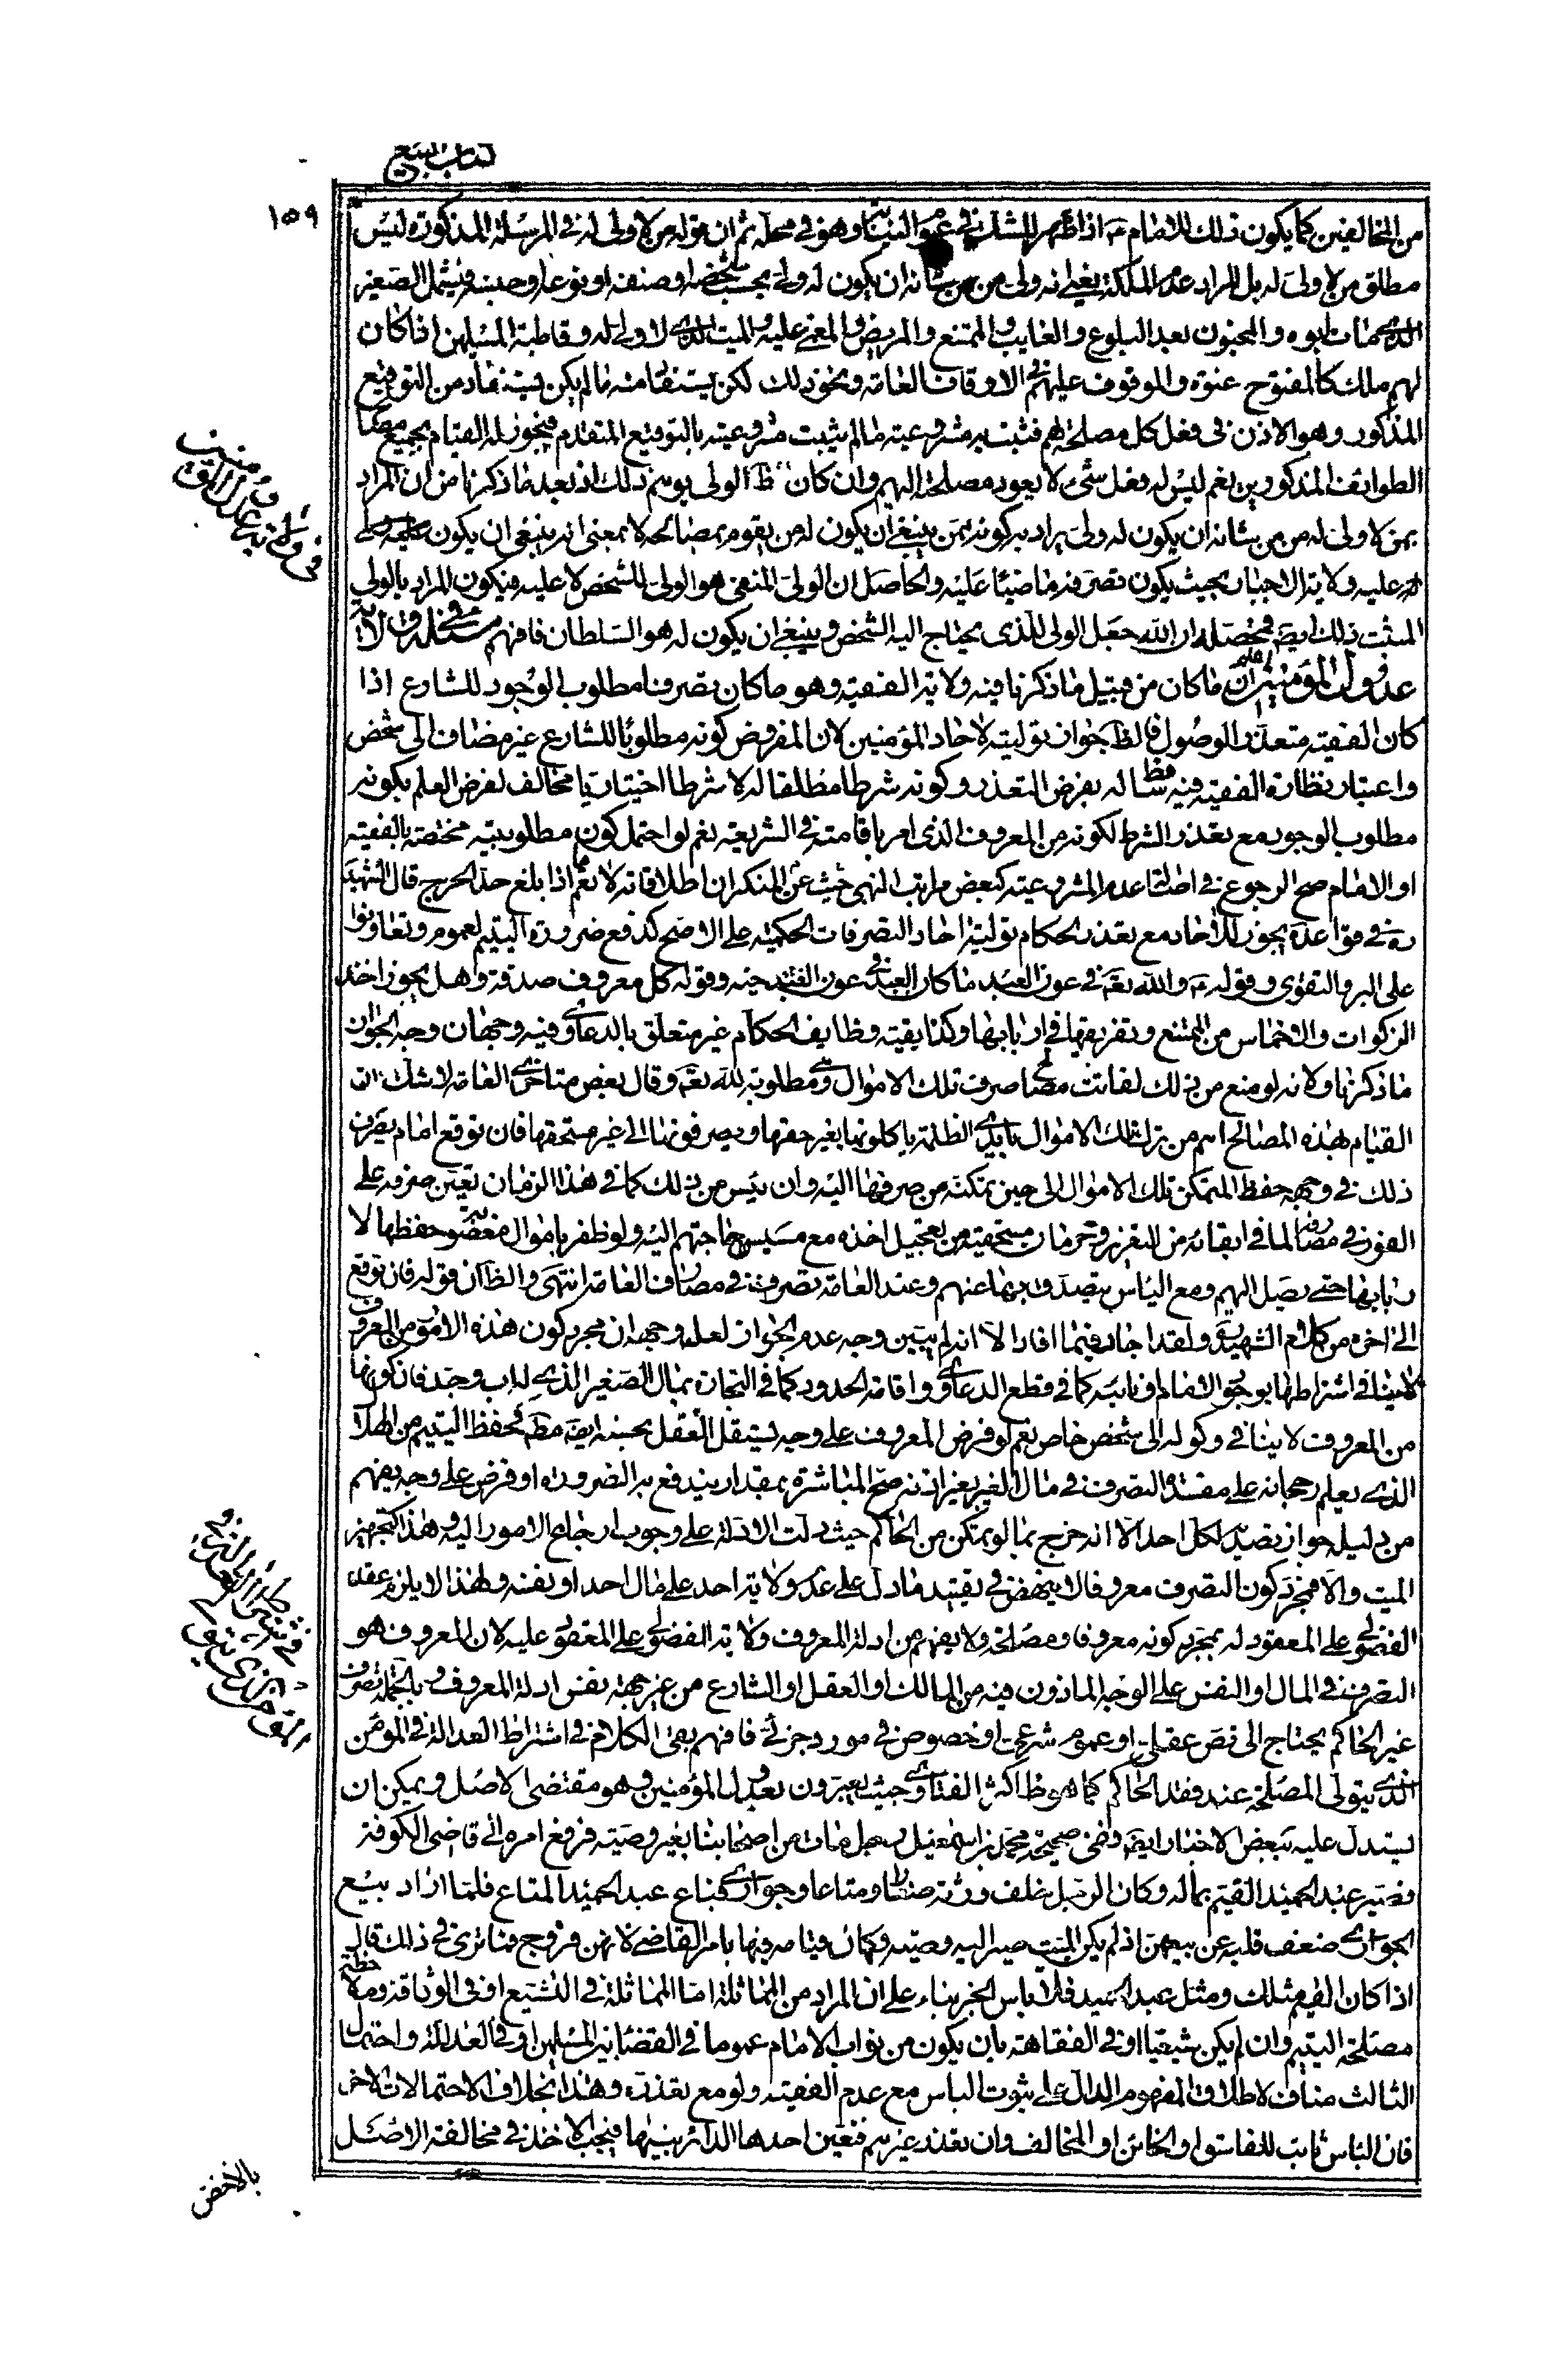 كتاب البيع
١٥٩
من المخالفين كما يكون ذلك للامام ع اذا ظهر الشك في عموم النيابة وهو في محله ثم ان قوله من لا ولى له في المرسلة المذكورة ليس
مطلق من لا ولى له بل المراد عدم الملكة يعنى انه ولى من من شانه ان يكون له ولى بحسب شخصه او صنفه او نوعه او جنسه فيشمل الصغير
الذى مات ابوه والمجنون بعد البلوغ والغايب والممتنع والمريض والمغمى عليه والميت الذى لا ولى له وقاطبة المسلمين اذا كان
لهم ملك كالمفتوح عنوة والموقوف عليهم في الاوقاف العامة ونحو ذلك لكن يستفاد منه ما لم يكن يستفاد من التوقيع
المذكور وهو الاذن في فعل كل مصلحة لهم فتثبت به مشروعية ما لم يثبت مشروعيته بالتوقيع المتقدم فيجوز له القيام بجميع مصالح
الطوائف المذكورين نعم ليس له فعل شئ لا يعود مصلحته اليهم وان كان ظ الولى يوهم ذلك اذ بعد ما ذكرنا من ان المراد
بمن لا ولى له من من شانه ان يكون له ولى يراد به كونه ممن ينبغى ان يكون له من يقوم بمصالحه لا بمعنى انه ينبغى ان يكون عليه ولى
له عليه ولاية الاجبار بحيث يكون تصرفه ماضيا عليه والحاصل ان الولى المنفى هو الولى للشخص لا عليه فيكون المراد بالولى
المثبت ذلك ايض فمحصله ان الله جعل الولى الذى يحتاج اليه الشخص وينبغى ان يكون له هو السلطان فافهم مسئلة في ولاية
عدول المؤمنين اعلم ان ما كان من قبيل ما ذكرنا فيه ولاية الفقيه وهو ما كان تصرفا مطلوب الوجود للشارع اذا
كان الفقيه متعذر الوصول فالظ جواز توليته لاحاد المؤمنين لان المفروض كونه مطلوبا للشارع غير مضاف الى شخص
واعتبار نظارة الفقيه فيه ساقط بفرض التعذر وكونه شرطا مطلقا له لا شرطا اختياريا مخالف لفرض العلم بكونه
مطلوب الوجود مع تعذر الشرط لكونه من المعروف الذى امر باقامته في الشريعة نعم لو احتمل كون مطلوبيته مختصة بالفقيه
او الامام صح الرجوع في اصالة عدم المشروعية كبعض مراتب النهى عن المنكر حيث ان اطلاقاته لا تعم ما اذا بلغ حد الجرح قال الشهيد
ره في قواعده يجوز للاحاد مع تعذر الحكام تولية احاد التصرفات الحكمية على الاصح كدفع ضرورة اليتيم لعموم وتعاونوا
على البر والتقوى وقوله ع والله تعم في عون العبد ما كان العبد في عون اخيه وقوله كل معروف صدقة وهل يجوز اخذ
الزكوات والاخماس من الممتنع وتفريقها في اربابها وكذا بقية وظايف الحكام غير متعلق بالدعاوى فيه وجهان وجه الجواز
ما ذكرنا ولانه لو منع من ذلك لفاتت مصالح صرف تلك الاموال وهى مطلوبة لله تعم وقال بعض متاخرى العامة لا شك ان
القيام بهذه المصالح اهم من ترك تلك الاموال بايدى الظلمة ياكلونها بغير حقها ويصرفونها الى غير مستحقها فان توقع امام يصرف
ذلك في وجهه حفظ المتمكن تلك الاموال الى حين تمكنه من صرفها اليه وان يئس من ذلك كما في هذا الزمان تعين صرفه على
الفور في مصارفه لما في ابقائه من التغرير وحرمان مستحقيه من تعجيل اخذه مع مسيس حاجتهم اليه ولو ظفر باموال مغصوبة حفظها لا
ربابها حتى تصل اليهم ومع الياس يتصدق بها عنهم وعند العامة تصرف في مصارف العامة انتهى والظ ان قوله فان توقع
الى اخره من كلام الشهيد قده ولقد اجاد فيما افاد الا انه لم يبين وجه عدم الجواز لعله وجهه ان مجرد كون هذه الامور من المعروف
لا ينافى اشتراطها بوجود الامام او نائبه كما في قطع الدعاوى واقامة الحدود كما في التجارة بمال الصغير الذى له اب وجد فان كونها
من المعروف لا ينافي وكوله الى شخص خاص نعم لو فرض المعروف على وجه يستقل العقل بحسنه ايض مط كحفظ اليتيم من الهلاك
الذى يعلم رجحانه على مفسدة التصرف في مال الغير بغير اذنه صح المباشرة بمقدار يندفع به الضرورة او فرض على وجه يفهم
من دليله جواز تصديه لكل احد الا انه خرج بما لو تمكن من الحاكم حيث دلت الادلة على وجوب ارجاع الامور اليه وهذا كتجهيز
الميت والا فمجرد كون التصرف معروفا لا ينهض في تقييد ما دل على عدم ولاية احد على مال احد او نفسه ولهذا لا يلزم عقد
الفضولى على المعقود له بمجرد كونه معروفا ومصلحة ولا يفهم من ادلة المعروف ولاية الفضولى على المعقود عليه لان المعروف هو
التصرف في المال او النفس على الوجه الماذون فيه من المالك او العقل او الشارع من غير جهة نفس ادلة المعروف وبالجملة تصرف
غير الحاكم يحتاج الى نص عقلى او عموم شرعى او خصوص في مورد جزئى فافهم بقى الكلام في اشتراط العدالة في المؤمن
الذى يتولى المصلحة عند فقد الحاكم كما هو ظ اكثر الفتاوى حيث يعبرون بعدول المؤمنين وهو مقتضى الاصل ويمكن ان
يستدل عليه ببعض الاخبار ايض ففى صحيحة محمد بن اسمعيل رجل مات من اصحابنا بغير وصية فرفع امره الى قاضى الكوفة
فصير عبد الحميد القيم بماله وكان الرجل خلف ورثة صغارا ومتاعا وجوارى فباع عبد الحميد المتاع فلما اراد بيع
الجوارى ضعف قلبه عن بيعهن اذ لم يكن الميت صير اليه وصيته وكان قيامه فيها بامر القاضى لانهن فروج فما ترى في ذلك قال
اذا كان القيم مثلك ومثل عبد الحميد فلا باس الخبر بناء على ان المراد من المماثلة اما المماثلة في التشيع او في الوثاقة وملاحظة
مصلحة اليتيم وان لم يكن شيعيا او في الفقاهة بان يكون من نواب الامام عموما في القضاء بين المسلمين او في العدالة واحتمال
الثالث مناف لاطلاق المفهوم الدال على ثبوت الباس مع عدم الفقيه ولو مع تعذره وهذا بخلاف الاحتمالات الاخر
فان الباس ثابت للفاسق او الخائن او المخالف وان تعذر غيرهم فتعين احدها الدائر بينها فيجب الاخذ في مخالفة الاصل
بالاخص